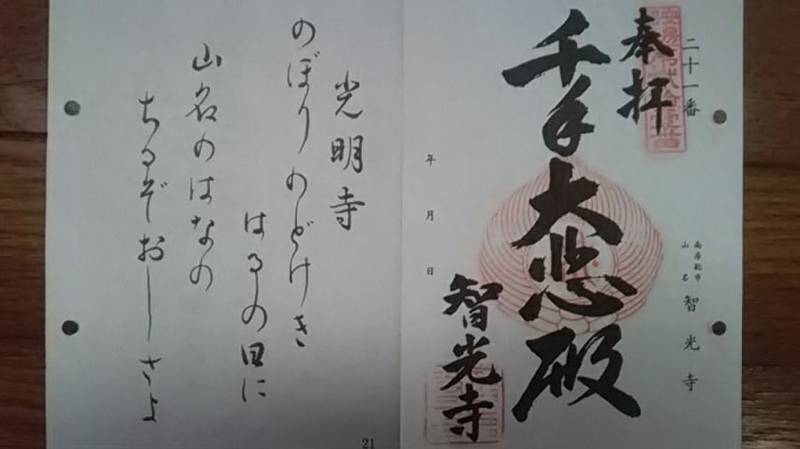 二十一番
奉拝
南房総市
山名
智光寺
千手大悲殿
智光寺
年 月 日
光明寺
のぼりのどけき
はるの日に
山名のはなの
ちるぞおしさよ
21